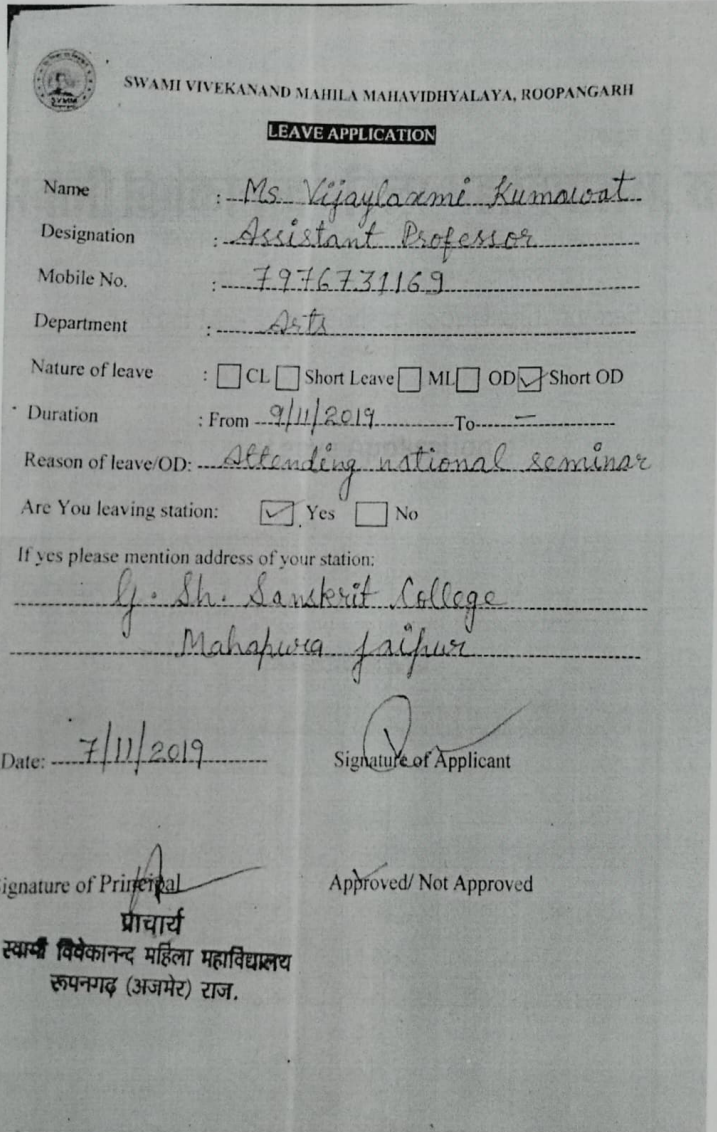 SVMM
SWAMI VIVEKANAND MAHILA MAHAVIDHYALAYA, ROOPANGARH
LEAVE APPLICATION
Name : Ms. Vijaylaxmi Kumawat
Designation : Assistant Professor
Mobile No. : 7976731169
Department : Arts
Nature of leave : ☐ CL ☐ Short Leave ☐ ML ☐ OD ☑ Short OD
Duration : From 9/11/2019 To —
Reason of leave/OD: Attending national seminar
Are You leaving station: ☑ Yes ☐ No
If yes please mention address of your station:
G. Sh. Sanskrit College
Mahapura Jaipur
Date: 7/11/2019 Signature of Applicant
ignature of Principal Approved/ Not Approved
प्राचार्य
स्वामी विवेकानन्द महिला महाविद्यालय
रूपनगढ़ (अजमेर) राज.